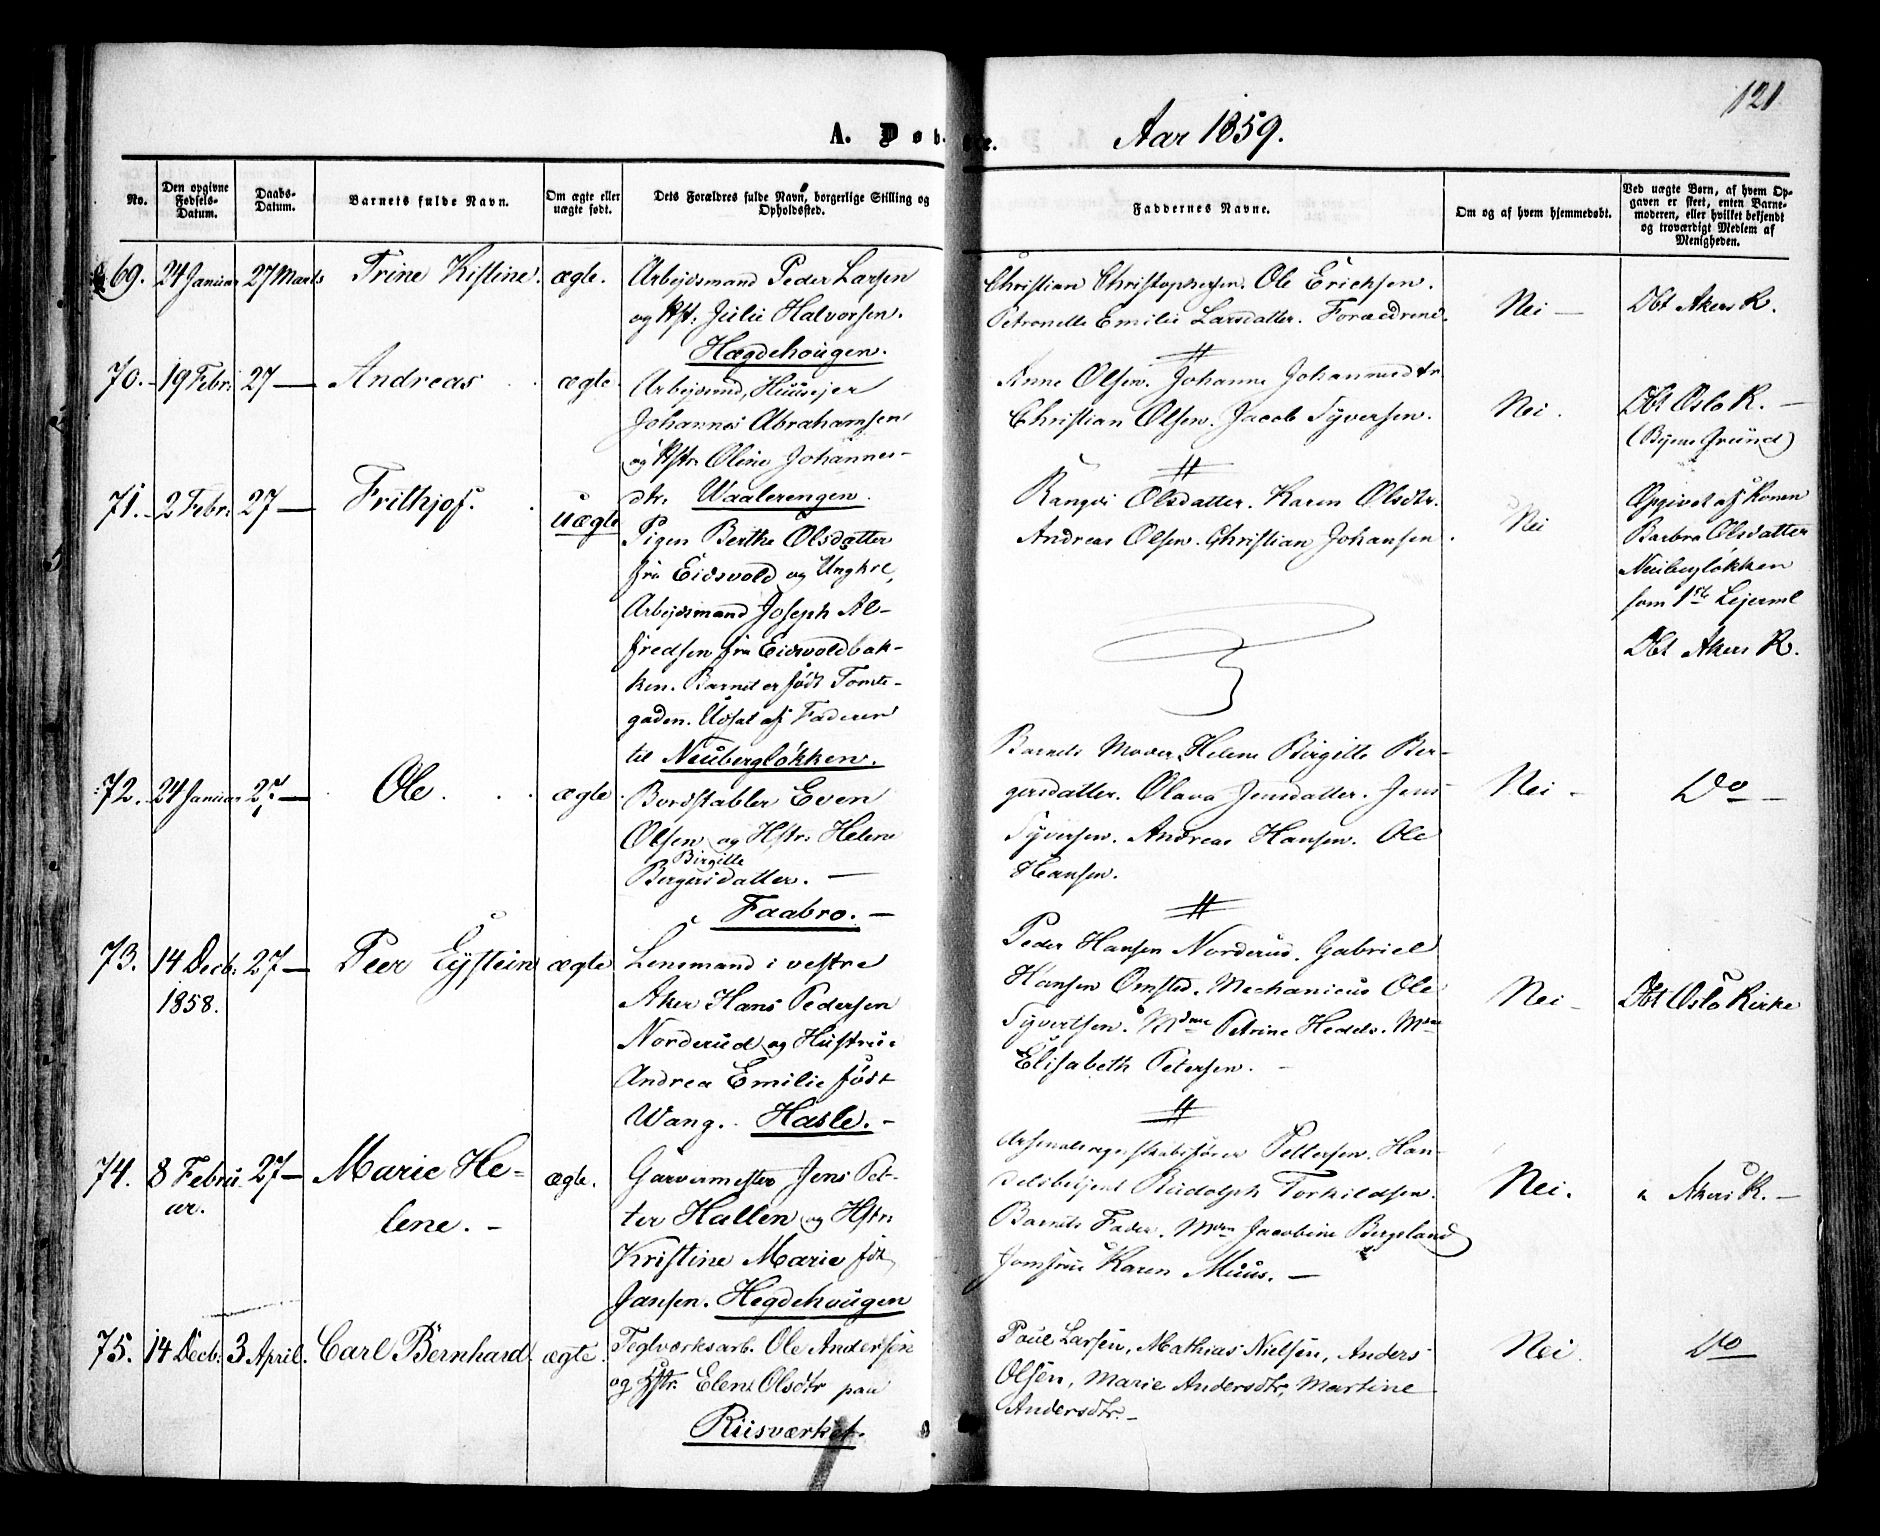 121
A. Døbte. Aar 1859.
No.
Den opgivne Fødsels-Datum.
Daabs-Datum.
Barnets fulde Navn.
Om ægte eller uægte født.
Dets Forældres fulde Navn, borgerlige Stilling og Opholdssted.
Faddernes Navne.
Om og af hvem hjemmedøbt.
Ved uægte Børn, af hvem Opgaven er skeet, enten Barnemoderen, eller hvilket bekjendt og troværdigt Medlem af Menigheden.
69. 24 Januar 27 Marts Trine Kistine. ægte.
Arbejdsmand Peder Larsen
og Hst: Julie Halvorsen.
Hægdehougen.
Christian Christophersen. Ole Ericksen.
Petronelle Emilie Larsdatter. Forældrene.
Nei —
Dbt Akers K.
70. 19 Febr: 27 — Andreas ægte.
Arbejdsmd, Huusejer
Johannes Abrahamsen
og Hstr: Oline Johannes-
dtr. Waalerengen.
Anne Olsen. Johanne Johannesdtr
Christian Olsen. Jacob Syversen.
Nei.
Dbt Oslo K. —
(Byens Grund)
71. 2 Febr: 27 — Frithjof. uægte
Pigen Berthe Olsdatter
fra Eidsvold og Ungkl,
Arbejdsmand Joseph Al-
fredsen fra Eidsvoldbak-
ken. Barnet er født Tomte-
gaden. Udsat af Faderen
til Neubergløkken.
Rangdi Olsdatter. Karen Olsdtr.
Andreas Olsen. Christian Johansen.
Nei
Opgivet af Konen
Barbra Olsdatter
Neubergløkken
som 1ste Lejerml
Dbt Akers K.
72. 24 Januar 27 — Ole. ægte
Bordstabler Even
Olsen og Hstr: Helene
Birgitte
Bergersdatter. —
Faabro. —
Barnets Moder, Helene Birgitte Ber-
gersdatter. Olava Jensdatter. Jens
Syversen. Andreas Hansen. Ole
Hansen.
Nei —
Do —
73. 14 Decb: 27 — Peer Eystein ægte
1858.
Lensmand i vestre
Aker Hans Pedersen
Norderud og Hustrue
Andrea Emilie født
Wang. Hasle. —
Peder Hansen Norderud. Gabriel
Hansen Omsted. Mechanicus Ole
Syvertsen. Mdme Petrine Hedels. Mme
Elisabeth Petersen. —
Nei —
Dbt Oslo Kirke
74. 8 Febru- 27 — Marie He- ægte.
ar. lene. —
Garvermester Jens Pet-
ter Hallen og Hstr:
Kristine Marie fdt
Jansen. Hegdehougen
Arsenalregnskabsfører Pettersen. Han-
delsbetjent Rudolph Torkildsen.
Barnets Fader. Mdm Jacobine Bergeland
Jomfrue Karen Muus. —
Nei.
Akers K. —
75. 14 Decb: 3 April. Carl Bernhard. ægte.
Teglværksarb. Ole Andersen
og Hstr: Elene Olsdtr paa
Riisværket.
Poul Larsen, Mathias Nielsen, Anders
Olsen, Marie Andersdtr, Martine
Andersdtr. —
Nei.
Do